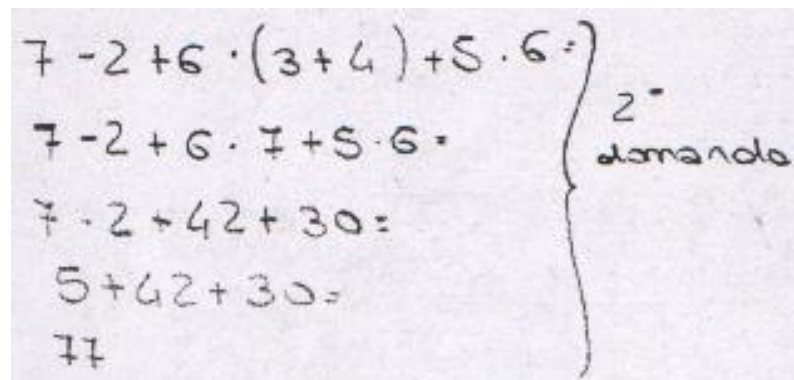 7 - 2 + 6 · (3 + 4) + 5 · 6 =
7 - 2 + 6 · 7 + 5 · 6 =
7 - 2 + 42 + 30 =
5 + 42 + 30 =
77
2ª
domanda